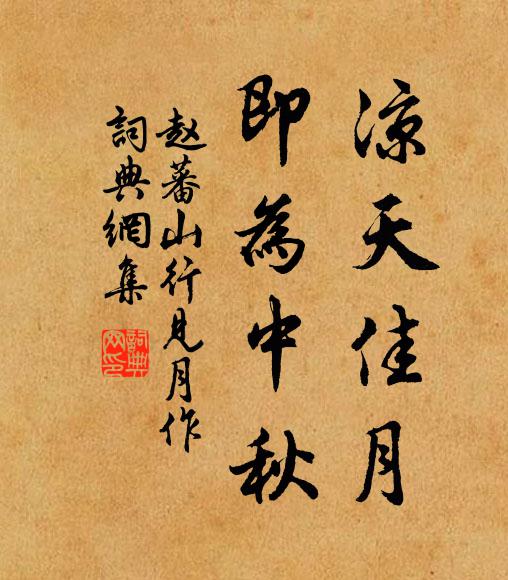 凉天佳月
即為中秋
赵蕃山行見月作
詞典網集
詞典
网印